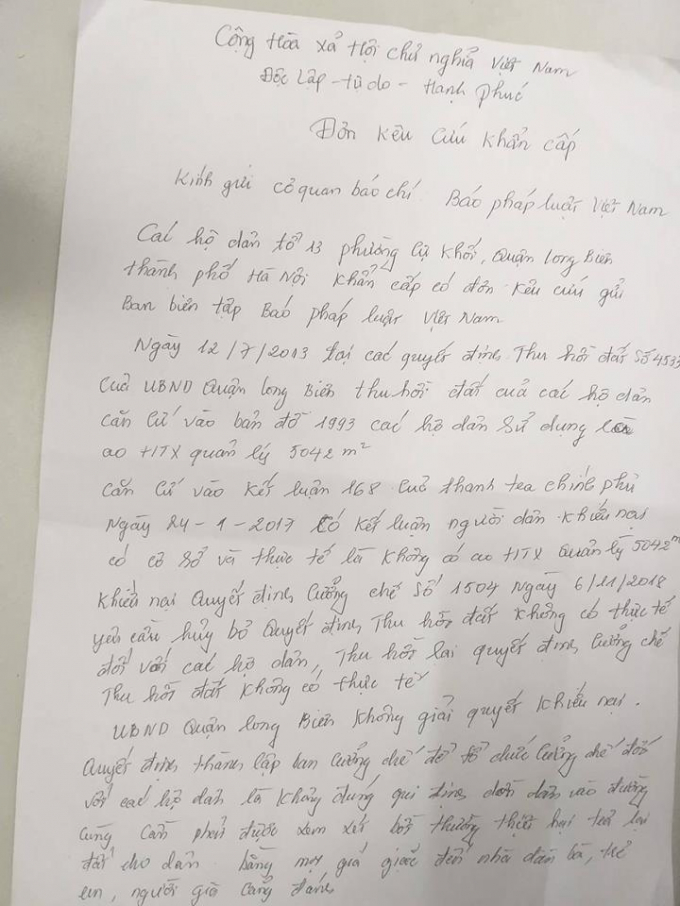 Cộng Hòa xả Hội chủ nghĩa Việt Nam
Độc Lập - tự do - Hạnh phúc
Đơn Kêu cứu khẩn cấp
Kính gửi cơ quan báo chí Báo pháp luật Việt Nam
Các hộ dân tổ 13 phường cự khối, Quận long Biên
thành phố Hà Nội khẩn cấp có đơn kêu cứu gửi
Ban biên tập Báo pháp luật Việt Nam
Ngày 12/7/2013 tại các quyết định Thu hồi đất số 4533
Của UBND Quận long Biên thu hồi đất của các hộ dân
căn cứ vào bản đồ 1993 các hộ dân sử dụng là
ao HTX quản lý 5042 m²
Căn cứ vào kết luận 168 của thanh tra chính phủ
Ngày 24-1-2017 có kết luận người dân khiếu nại
có cơ sở và thực tế là không có ao HTX quản lý 5042 m²
Khiếu nại quyết định cưởng chế số 1504 ngày 6/11/2018
yêu cầu hủy bỏ quyết định Thu hồi đất không có thực tế
đối với các hộ dân, Thu hồi lại quyết định cưởng chế
Thu hồi đất không có thực tế
UBND Quận long Biên không giải quyết khiếu nại.
Quyết định thành lập ban cưởng chế để tổ chức cưởng chế đối
với các hộ dân là không đúng qui định dồn dân vào đường
cùng cần phải được xem xét bồi thường thiệt hại trả lại
đất cho dân bằng mọi giá đến nhà đàn bà, trẻ
em, người già